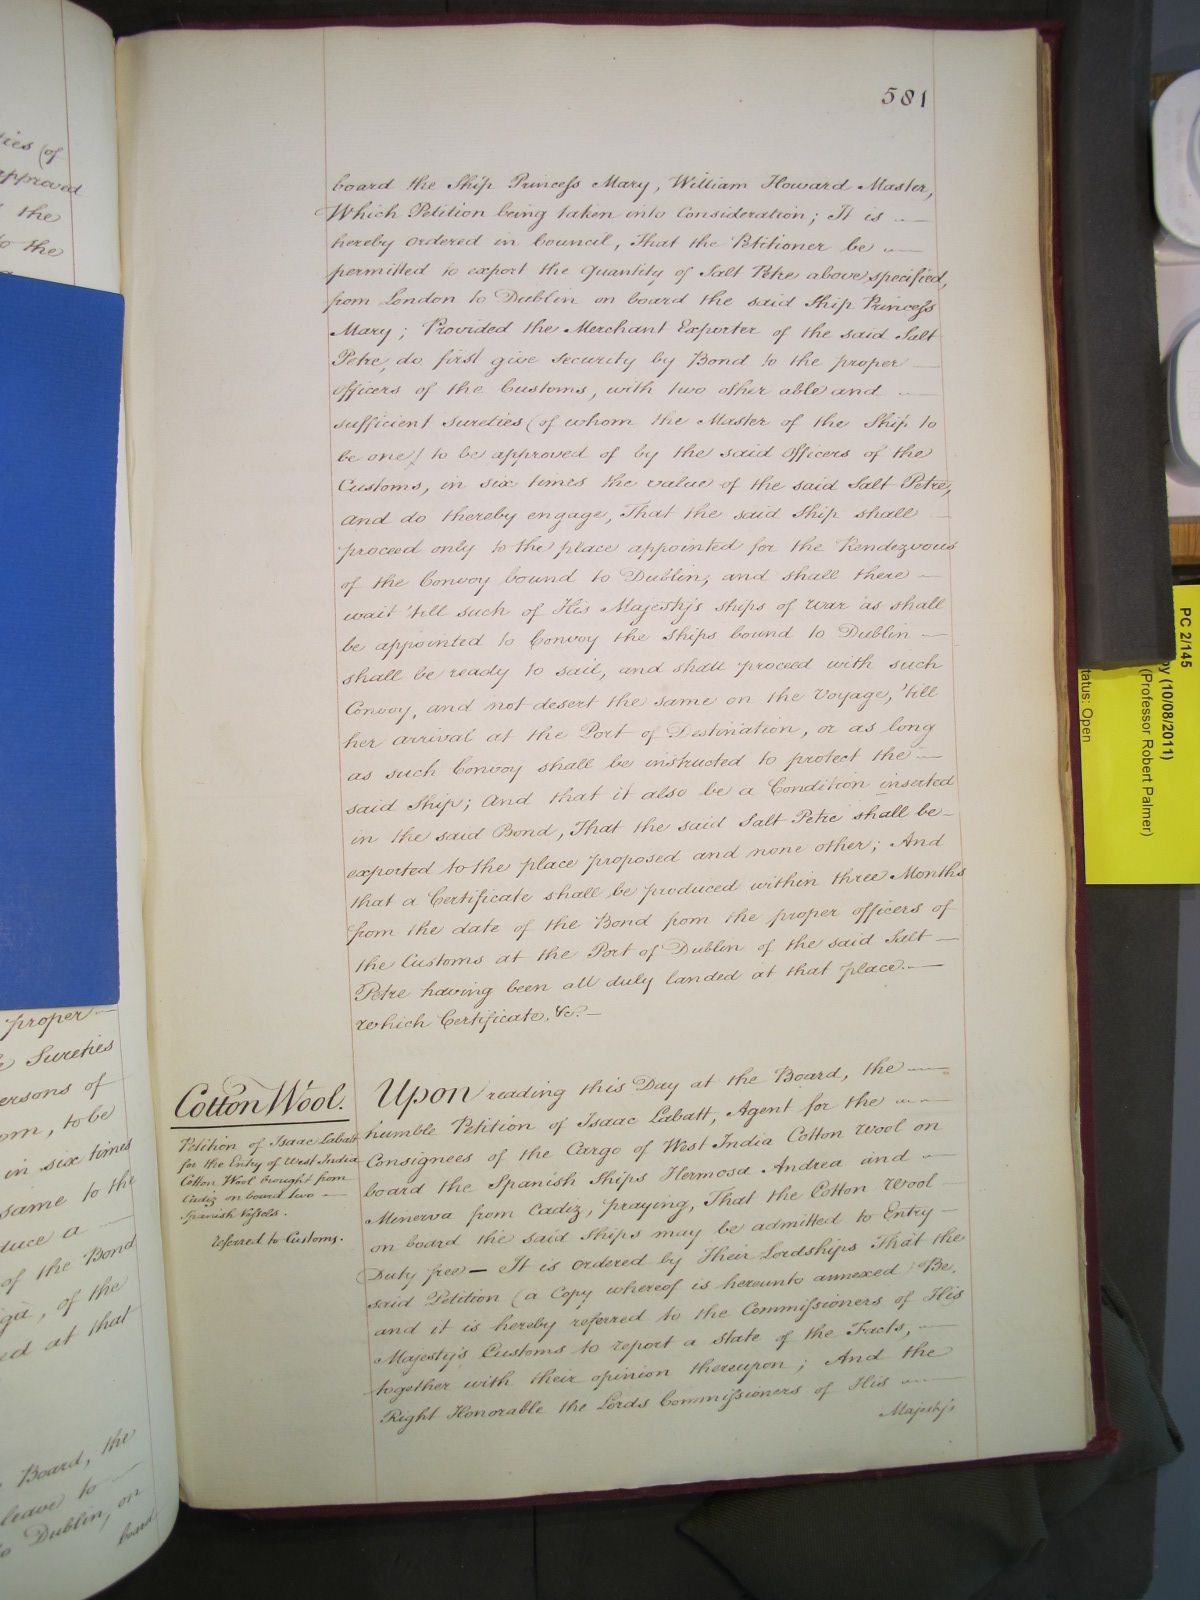 581
board the Ship Princess Mary, William Howard Master,
Which Petition being taken into Consideration; It is
hereby ordered in Council, That the Petitioner be
permitted to export the Quantity of Salt Petre above specified,
from London to Dublin on board the said Ship Princess
Mary; Provided the Merchant Exporter of the said Salt
Petre, do first give security by Bond to the proper
officers of the Customs, with two other able and
sufficient sureties (of whom the Master of the Ship to
be one) to be approved of by the said Officers of the
Customs, in six times the value of the said Salt Petre,
and do thereby engage, That the said Ship shall
proceed only to the place appointed for the Rendezvous
of the Convoy bound to Dublin, and shall there
wait 'till such of His Majesty's ships of war as shall
be appointed to Convoy the Ships bound to Dublin
shall be ready to sail, and shall proceed with such
Convoy, and not desert the same on the Voyage, 'till
her arrival at the Port of Destination, or as long
as such Convoy shall be instructed to protect the
said Ship; And that it also be a Condition inserted
in the said Bond, That the said Salt Petre shall be
exported to the place proposed and none other; And
that a Certificate shall be produced within three Months
from the date of the Bond from the proper officers of
the Customs at the Port of Dublin of the said Salt
Petre having been all duly landed at that place.
which Certificate, &c.
Cotton Wool.
Petition of Isaac Labatt
for the Entry of West India
Cotton Wool brought from
Cadiz on board two
Spanish Vessels.
referred to Customs.
Upon reading this Day at the Board, the
humble Petition of Isaac Labatt, Agent for the
Consignees of the Cargo of West India Cotton Wool on
board the Spanish Ships Hermosa Andrea and
Minerva from Cadiz, praying, That the Cotton Wool
on board the said Ships may be admitted to Entry
Duty free — It is ordered by Their Lordships That the
said Petition (a Copy whereof is hereunto annexed) Be,
and it is hereby referred to the Commissioners of His
Majesty's Customs to report a state of the Facts,
together with their opinion thereupon; And the
Right Honorable the Lords Commissioners of His
Majesty's
ties (of
approved
the
to the
proper
Sureties
ersons of
om, to be
in six times
same to the
duce a
of the Bond
of the
ed at that
Board, the
leave to
Dublin, on
board
PC 2/145
py (10/08/2011)
(Professor Robert Palmer)
tatus: Open